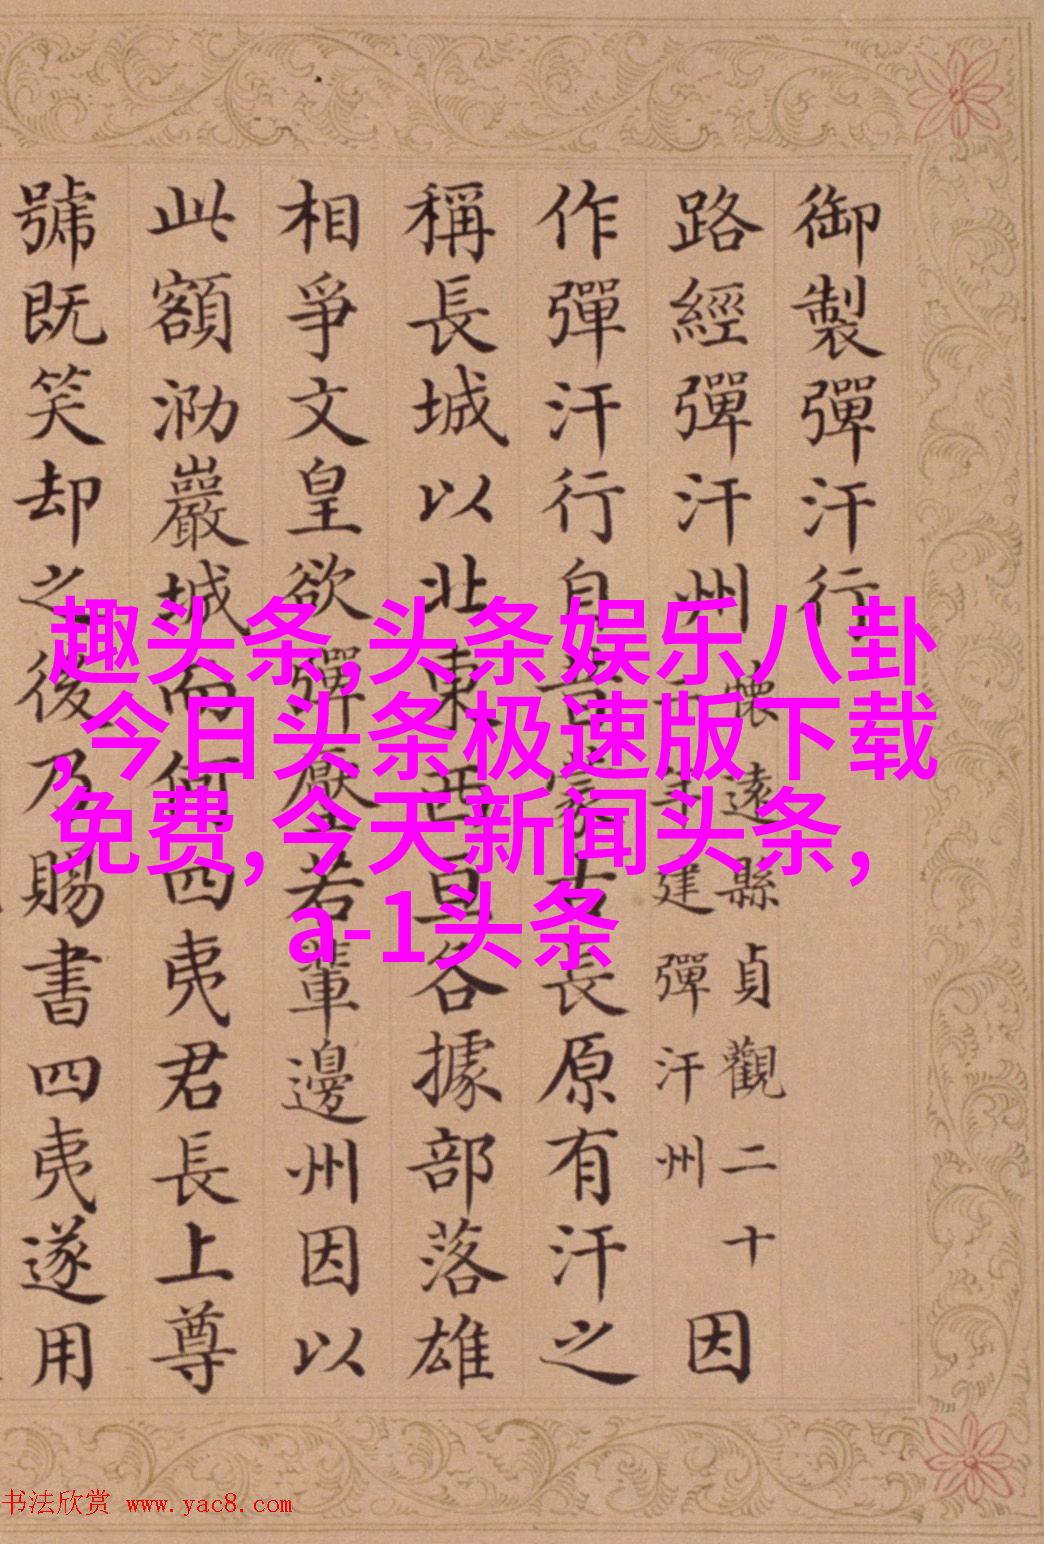 御製彈汗行
路經彈汗州
懷遠縣貞觀二十
三年建彈汗州
因
作彈汗行自昔蒙古長原有汗之
稱長城以北東西亘各據部落雄
相爭文皇欲彈壓若輩邊州因以
此額泐巖城而何四夷君長上尊
號既笑却之後乃賜書四夷遂用
趣头条,头条娱乐八卦
,今日头条极速版下载
免费,今天新闻头条,
a-1头条
书法欣赏 www.yac8.com